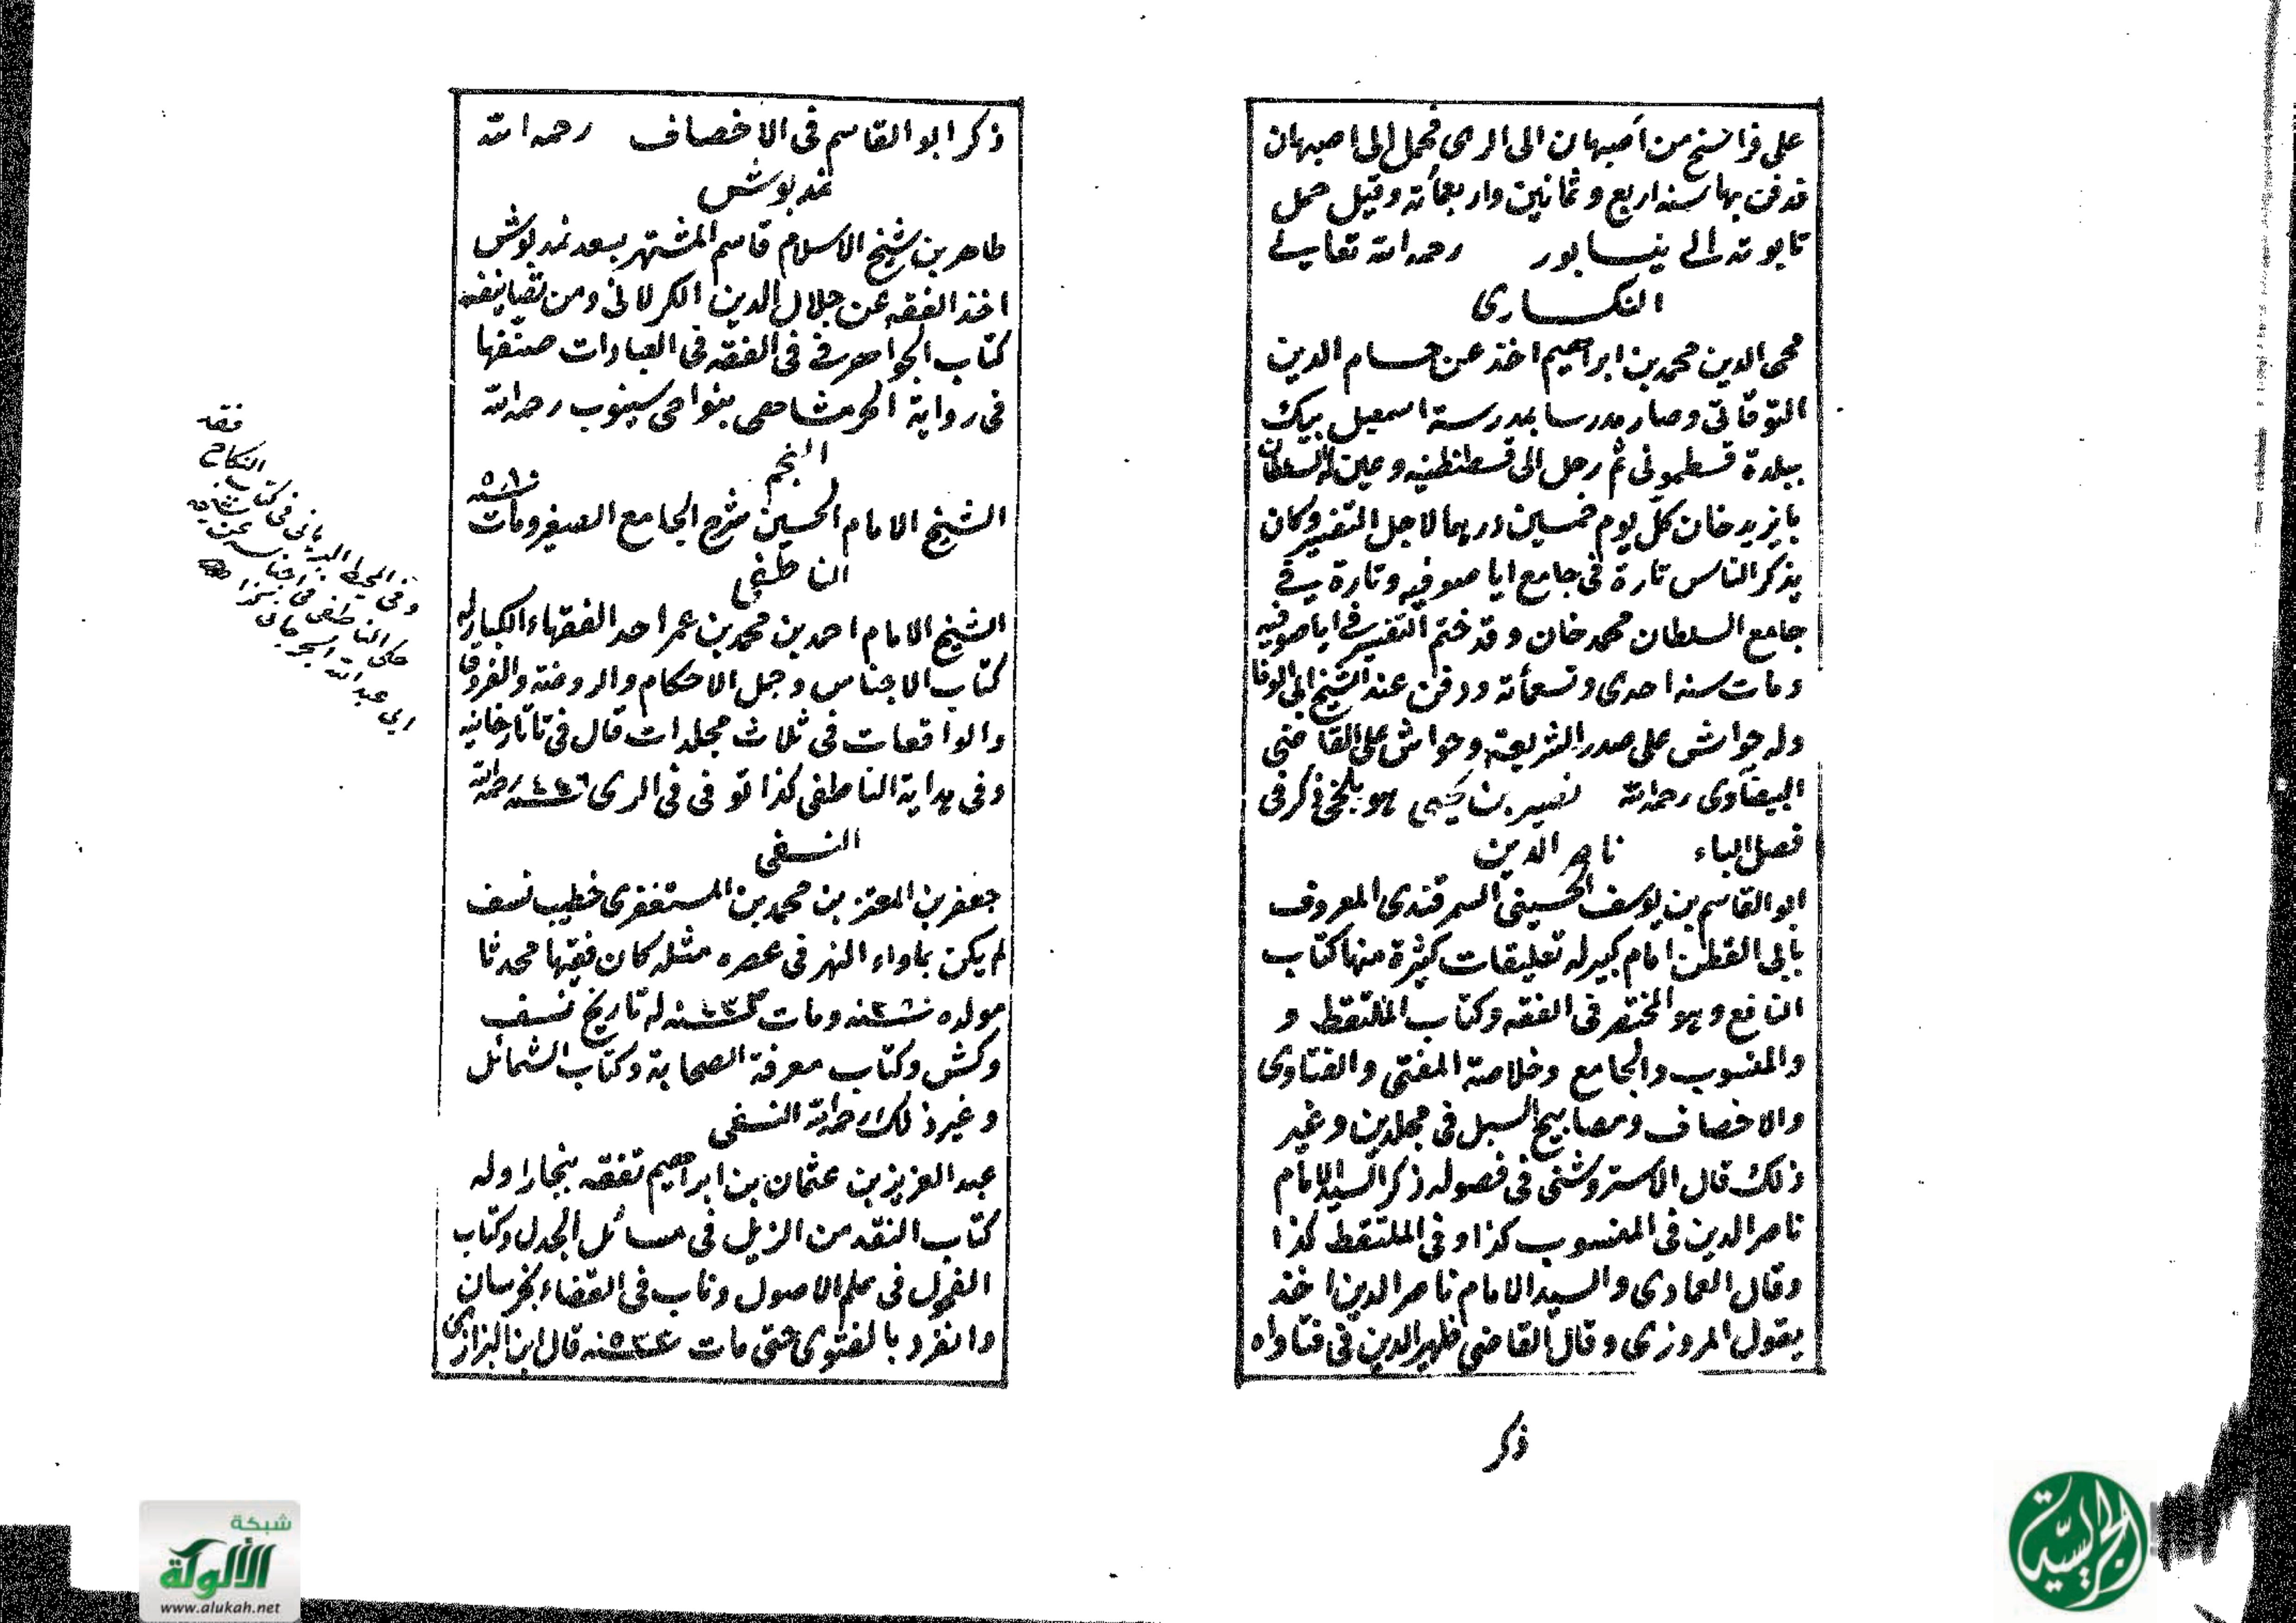 على فراسخ من اصبهان الى الرى فحمل الى اصبهان
فدفن بها سنه اربع وثمانين واربعمأته وقيل حمل
تابوته الى نيسابور رحمه الله تعالى
النكسارى
محى الدين محمد بن ابراهيم اخذ عن حسام الدين
التوقاتى وصار مدرسا بمدرسة اسمعيل بيك
ببلدة قسطمونى ثم رحل الى قسطنطنيه وعين له السلطان
بايزيد خان كل يوم خمسين درهما لاجل التفسير وكان
يذكر الناس تارة فى جامع ايا صوفيه وتارة فى
جامع السلطان محمد خان وقد ختم التفسير فى ايا صوفيه
ومات سنه احدى وتسعمأته ودفن عند الشيخ ابى الوفا
وله حواش على صدر الشريعة وحواش على القاضى
البيضاوى رحمه الله نصير بن يحيى هو بلخى ذكر فى
فصل الباء ناصر الدين
ابو القاسم بن يوسف الحسينى السمرقندى المعروف
بابى القطن امام كبير له تعليقات كثيرة منها كتاب
النافع وهو المختصر فى الفقه وكتاب الملتقط و
والمنسوب والجامع وخلاصة المفتى والفتاوى
والاخصاف ومصابيح السبل فى مجلدين وغير
ذلك قال الاستروشنى فى فصوله ذكر السيد الامام
ناصر الدين فى المنسوب كذا وفى الملتقط كذا
وقال العمادى والسيد الامام ناصر الدين اخذ
بقول المروزى وقال القاضى ظهير الدين فى فتاواه
ذكر
ذكر ابو القاسم فى الاخصاف رحمه الله
نمد بوش
طاهر بن شيخ الاسلام قاسم المشتهر بسعد نمد بوش
اخذ الفقه عن جلال الدين الكرلانى ومن تصانيفه
كتاب الجواهر فى فى الفقه فى العبادات صنفها
فى رواية بنواحى سينوب رحمه الله
النجم
الشيخ الامام الحسين شرح الجامع الصغير ومات ٥٨٠
الناطفى
الشيخ الامام احمد بن محمد بن عمر احد الفقهاء الكبار له
كتاب الاجناس وجمل الاحكام والروضة والفروق
والواقعات فى ثلاث مجلدات قال فى تاتارخانيه
وفى هداية الناطفى كذا توفى فى الرى ٤٤٦ سنه رحمه الله
النسفى
جعفر بن المعتز بن محمد بن المستغفرى خطيب نسف
لم يكن بماوراء النهر فى عصره مثله كان فقيها محدثا
مولده سنه ومات سنه له تاريخ نسف
وكش وكتاب معرفة الصحابة وكتاب الشمائل
وغير ذلك رحمه الله النسفى
عبد العزيز بن عثمان بن ابراهيم تفقه ببخارا وله
كتاب النقد من الزيل فى مسائل الجدل وكتاب
الفحول فى علم الاصول وناب فى القضاء بخرسان
وانفرد بالفتوى حتى مات سنه قال ابن البزازى
فقد
النكاح
وفى المحيط البرهانى فى كتاب
حكى الناطفى فى اجناسه عن
ابى عبد الله الجرجانى
شبكة
الألوكة
www.alukah.net